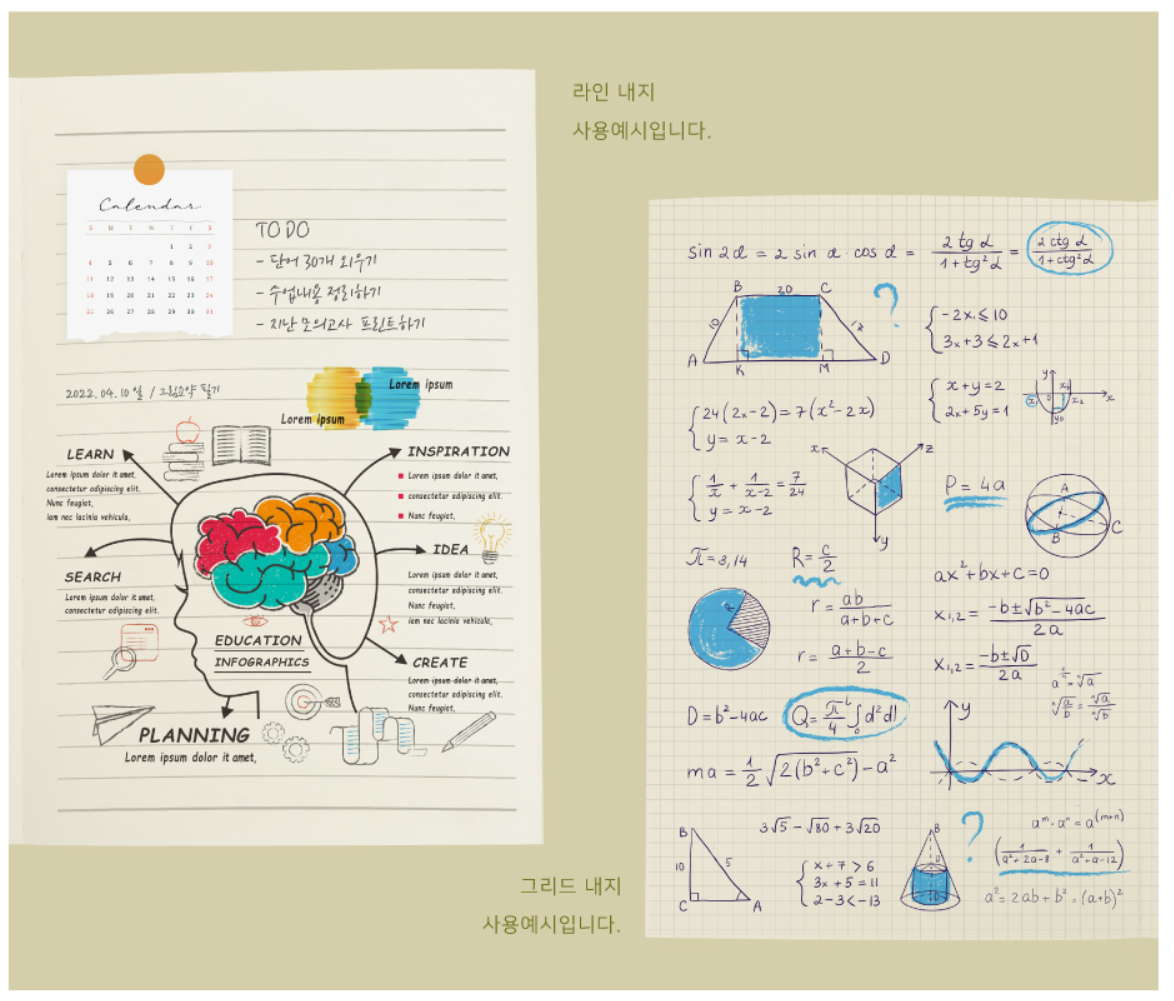 라인 내지
사용예시입니다.
Calendar
S M T W T F S
1 2 3
4 5 6 7 8 9 10
11 12 13 14 15 16 17
18 19 20 21 22 23 24
25 26 27 28 29 30 31
TO DO
- 단어 30개 외우기
- 수업내용 정리하기
- 지난 모의고사 프린트하기
2022. 04. 10 일 / 그림요약 필기
Lorem ipsum
Lorem ipsum
LEARN
Lorem ipsum dolor it amet,
consectetur adipiscing elit.
Nunc feugiet,
iam nec lacinia vehicula,
INSPIRATION
Lorem ipsum dolor it amet,
consectetur adipiscing elit.
Nunc feugiet,
SEARCH
Lorem ipsum dolor it amet,
consectetur adipiscing elit.
IDEA
Lorem ipsum dolor it amet,
consectetur adipiscing elit.
Nunc feugiet,
iam nec lacinia vehicula,
EDUCATION
INFOGRAPHICS
CREATE
Lorem ipsum dolor it amet,
consectetur adipiscing elit.
Nunc feugiet,
PLANNING
Lorem ipsum dolor it amet,
sin 2α = 2 sin α · cos α = 2 tg α / 1+tg²α = 2 ctg α / 1+ctg²α
B 20 C
10 12
A K M D
?
{ -2x₁ ≤ 10
3x+3 ≤ 2x+1
{ x+y=2
2x+5y=1
{ 24(2x-2)=7(x²-2x)
y = x-2
x z y
{ 1/x + 1/x-2 = 7/24
y = x-2
P = 4a
A B C
π=3,14
R= c/2
ax²+bx+c=0
r = ab / a+b+c
x₁,₂ = -b±√b²-4ac / 2a
r = a+b-c / 2
x₁,₂ = -b±√D / 2a
D=b²-4ac
Q= π/4 ∫ d²dl
y x
ma = 1/2 √2(b²+c²)-a²
B 10 5 C A
3√5 - √80 + 3√20
{ x+7 > 6
3x+5=11
2-3<-13
B
?
aᵐ · aⁿ = a⁽ᵐ⁺ⁿ⁾
(1/a²+2a-8 + 1/a²+a-12)
a²= 2ab + b² = (a+b)²
그리드 내지
사용예시입니다.